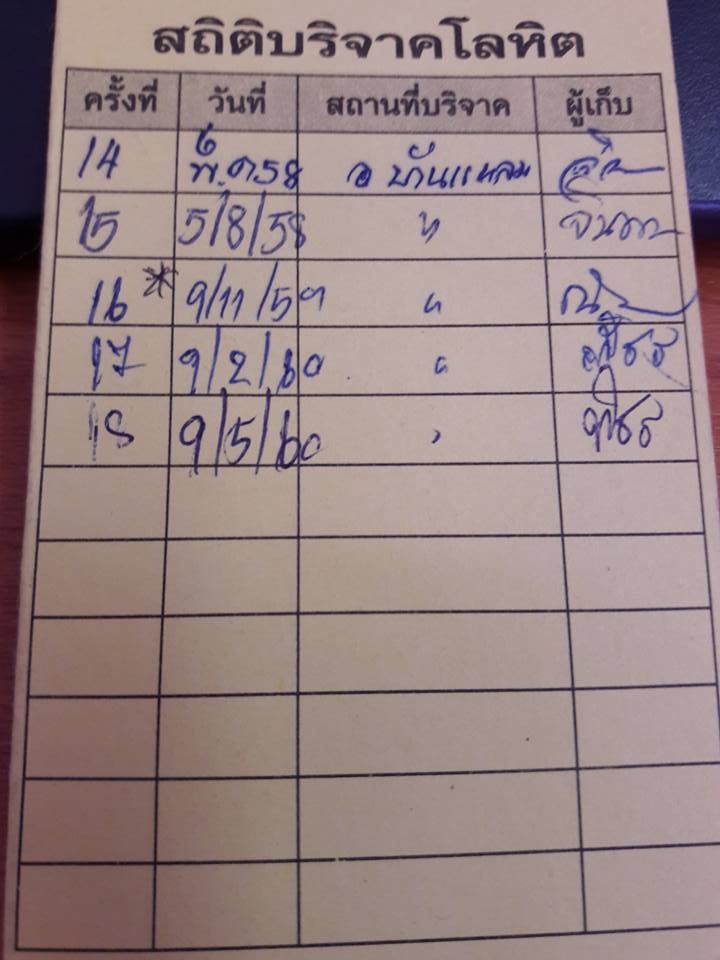 สถิติบริจาคโลหิต
ครั้งที่ วันที่ สถานที่บริจาค ผู้เก็บ
14 6 พ.ค 58 อ บ้านแหลม
15 5/8/58 "
16 * 9/11/59 "
17 9/2/60 "
18 9/5/60 "